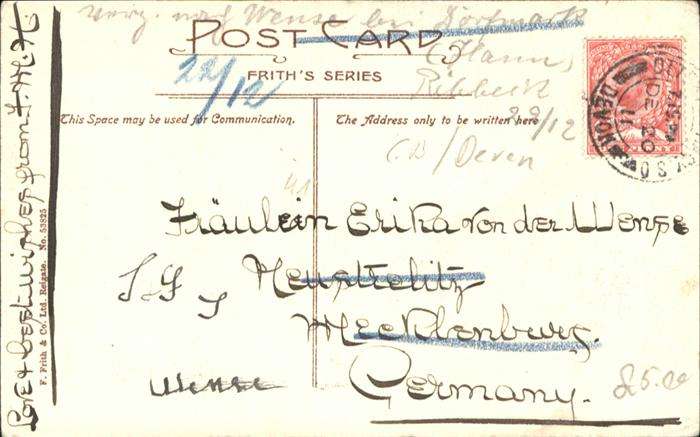 nach Wense bei Dorfmark
POST CARD
(Hann,
FRITH'S SERIES
22/12
22/12
This Space may be used for Communication.
The Address only to be written here
DEVON
DE 20
11
Fräulein Erika von der Wense
Neustrelitz
Mecklenburg.
Wense
Germany.
£5.00
Love & best wishes from F. M. H.
F. Frith & Co. Ltd. Reigate. No. 53825